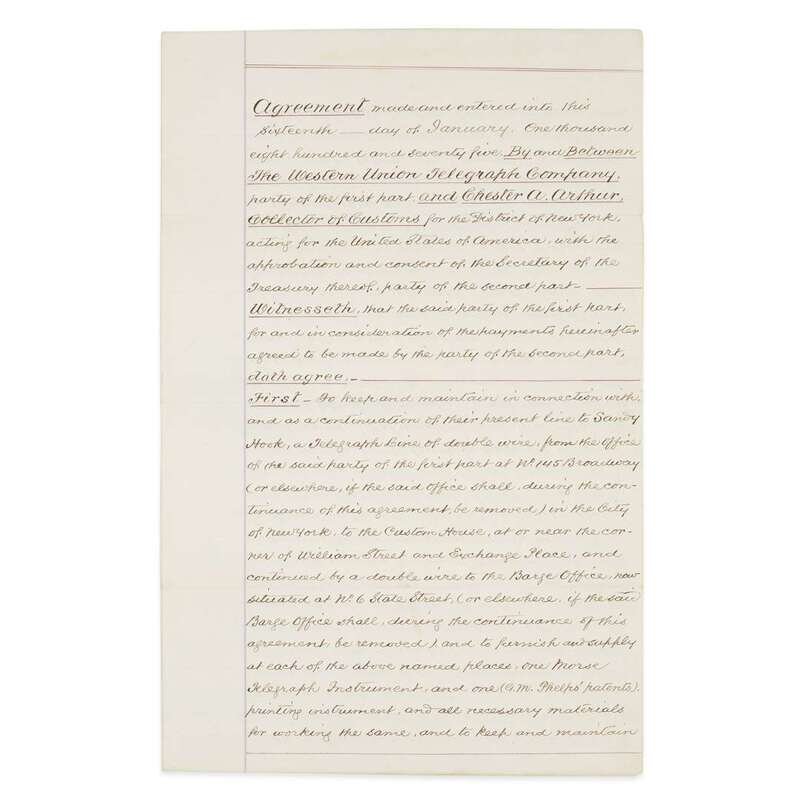 Agreement made and entered into this
sixteenth day of January, One thousand
eight hundred and seventy five, By and Between
The Western Union Telegraph Company,
party of the first part, and Chester A. Arthur,
Collector of Customs for the District of New York,
acting for the United States of America, with the
approbation and consent of the Secretary of the
Treasury thereof, party of the second part—
Witnesseth, that the said party of the first part,
for and in consideration of the payments hereinafter
agreed to be made by the party of the second part,
doth agree.—
First— To keep and maintain in connection with,
and as a continuation of their present line to Sandy
Hook, a Telegraph Line of double wire, from the Office
of the said party of the first part at No. 145 Broadway
(or elsewhere, if the said Office shall, during the con-
tinuance of this agreement, be removed) in the City
of New York, to the Custom House, at or near the cor-
ner of William Street and Exchange Place, and
continued by a double wire to the Barge Office, now
situated at No. 6 State Street, (or elsewhere, if the said
Barge Office shall, during the continuance of this
agreement, be removed), and to furnish and supply
at each of the above named places, one Morse
Telegraph Instrument, and one (G. M. Phelps' patents),
printing instrument, and all necessary materials
for working the same, and to keep and maintain